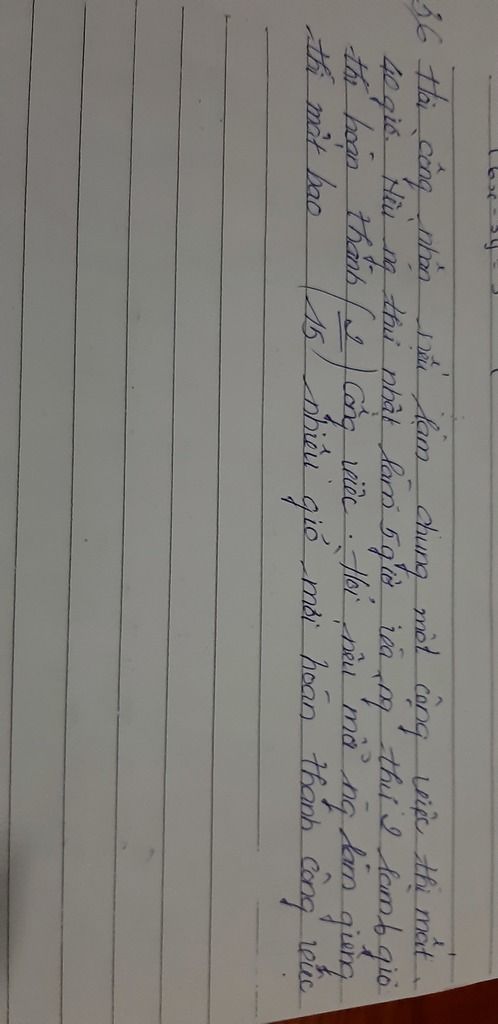 3,6 Hai công nhân nếu làm chung một công việc thì mất
40 giờ. Nếu ng thứ nhất làm 5 giờ và ng thứ 2 làm 6 giờ
thì hoàn thành (2/15) công việc. Hỏi nếu mỗi ng làm giêng
thì mất bao nhiêu giờ mới hoàn thành công việc